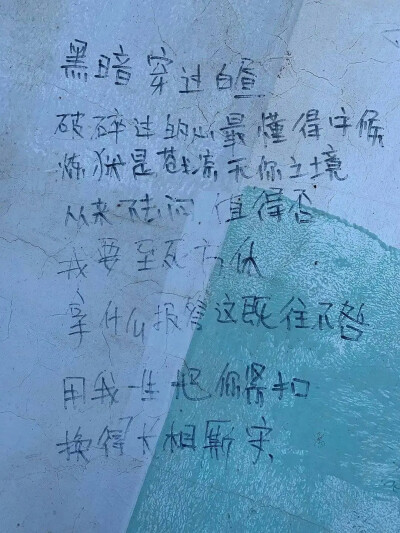 黑暗穿过白昼
破碎过的心最懂得守候
炼狱是苍凉无你之境
从来不去问 值得否
我要至死方休
拿什么报答这既往不咎
用我一生把你紧扣
换得长相厮守